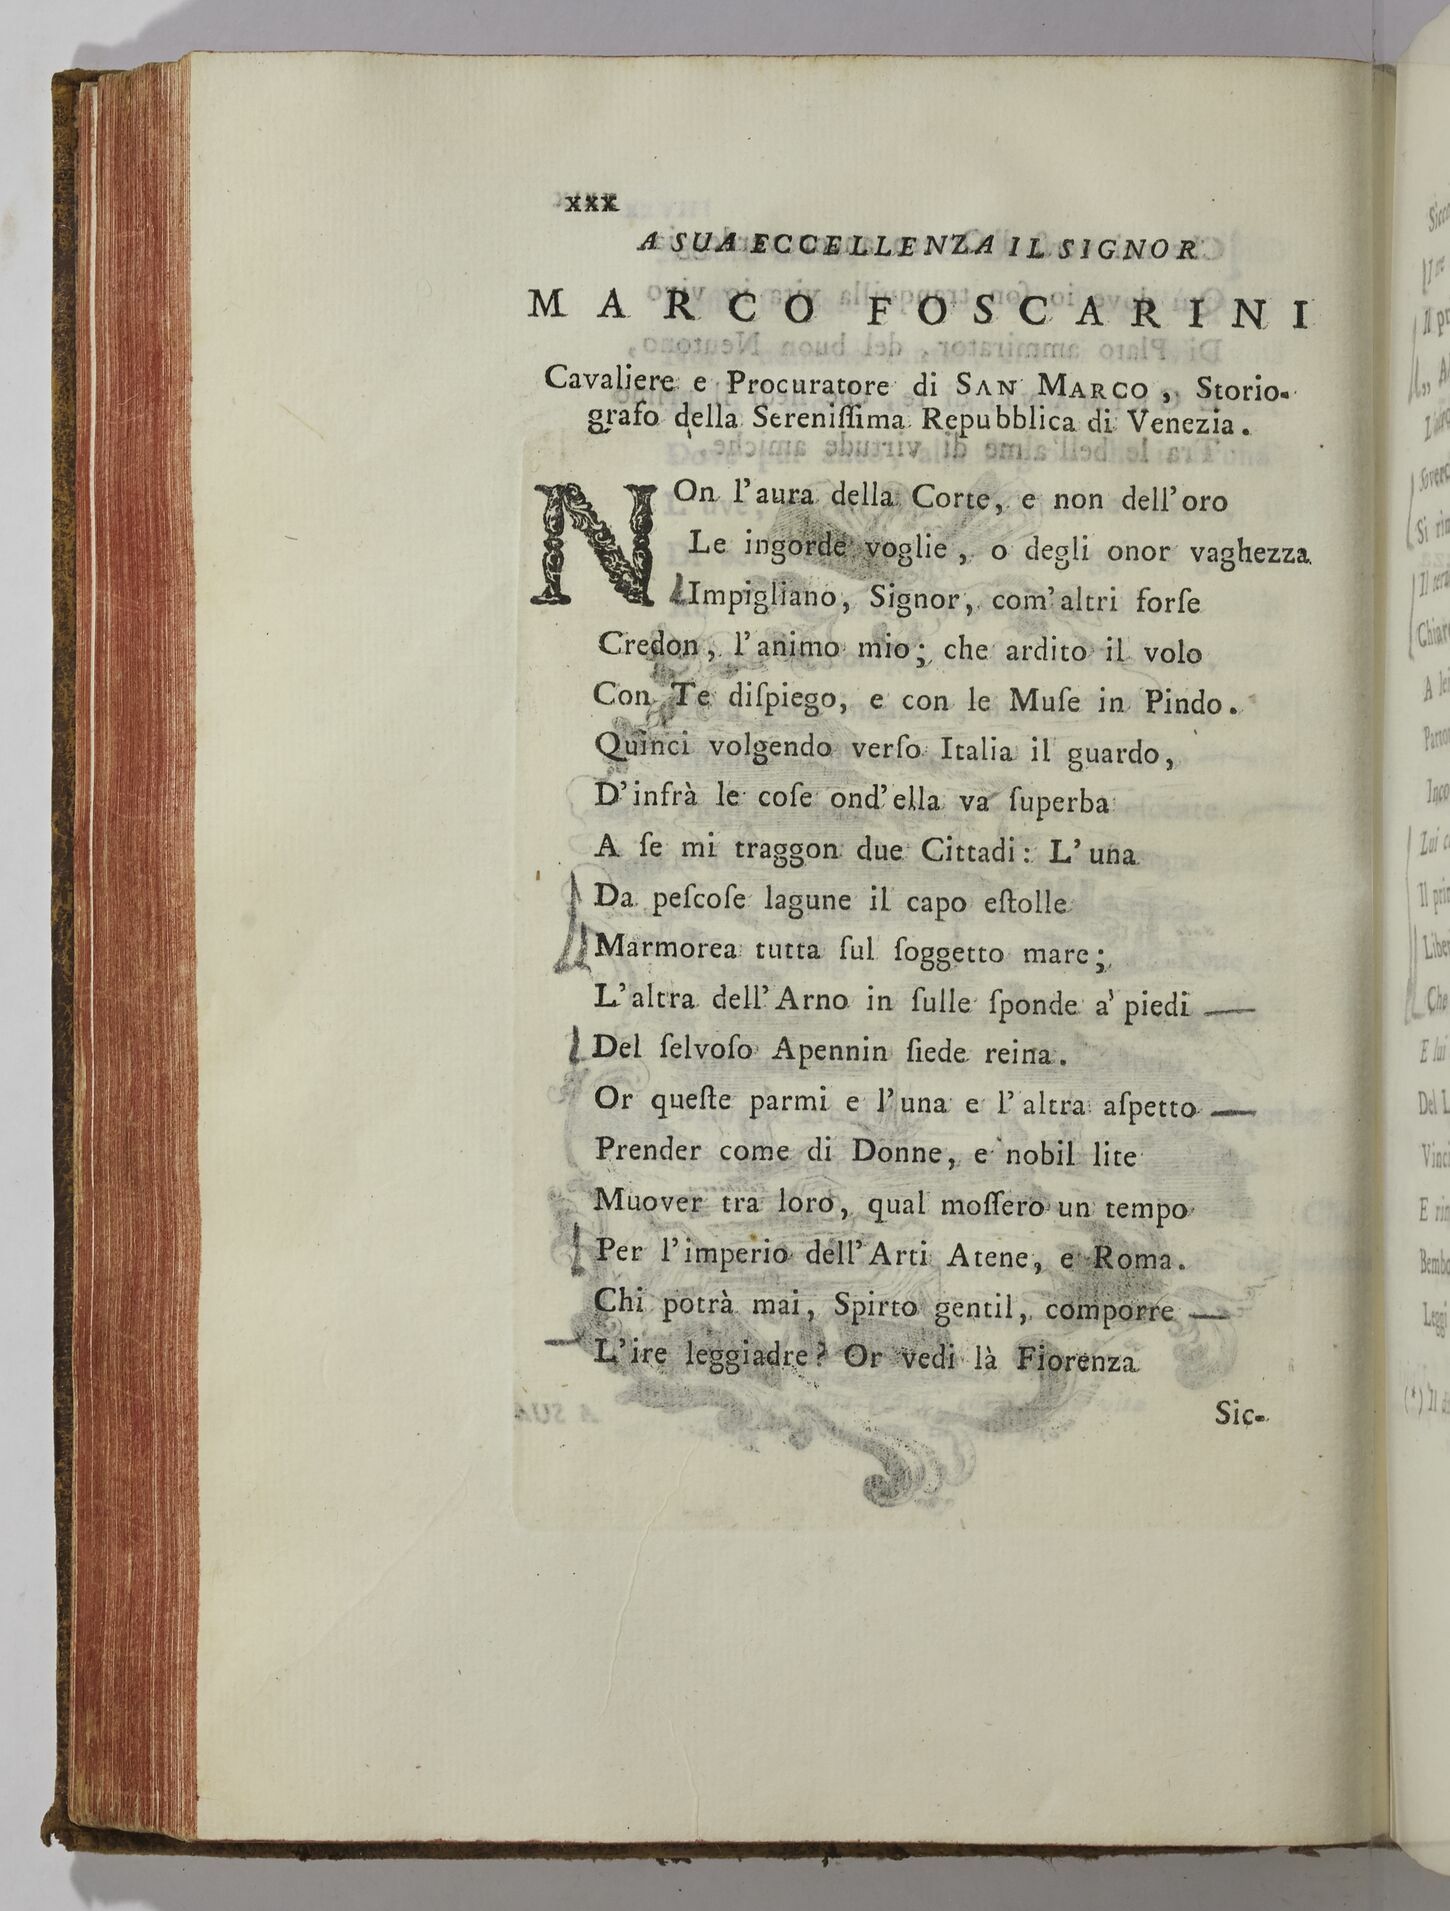 xxx
A SUA ECCELLENZA IL SIGNOR
MARCO FOSCARINI
Cavaliere e Procuratore di SAN MARCO, Storio-
grafo della Sereniſſima Repubblica di Venezia.
NOn l'aura della Corte, e non dell'oro
Le ingorde voglie, o degli onor vaghezza
Impigliano, Signor, com'altri forſe
Credon, l'animo mio; che ardito il volo
Con Te diſpiego, e con le Muſe in Pindo.
Quinci volgendo verſo Italia il guardo,
D'infrà le coſe ond'ella va ſuperba
A ſe mi traggon due Cittadi: L'una
Da peſcoſe lagune il capo eſtolle
Marmorea tutta ſul ſoggetto mare;
L'altra dell'Arno in ſulle ſponde a' piedi
Del ſelvoſo Apennin ſiede reina.
Or queſte parmi e l'una e l'altra aſpetto
Prender come di Donne, e nobil lite
Muover tra loro, qual moſſero un tempo
Per l'imperio dell'Arti Atene, e Roma.
Chi potrà mai, Spirto gentil, comporre
L'ire leggiadre? Or vedi là Fiorenza
Sic-